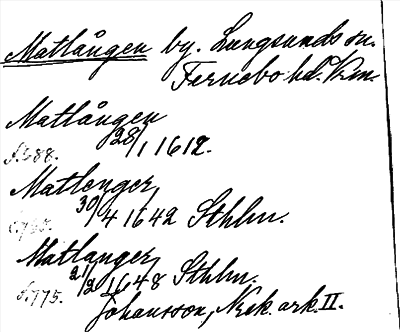 Matlången by. Lungsunds sn.
Fernebo hd. Vrm.
Matlången
28/1 1612.
s. 388.
Matlenger,
30/4 1642 Sthlm.
Matlanger,
21/2 1648 Sthlm.
s. 775.
Johansson, Nrk. ark. II.